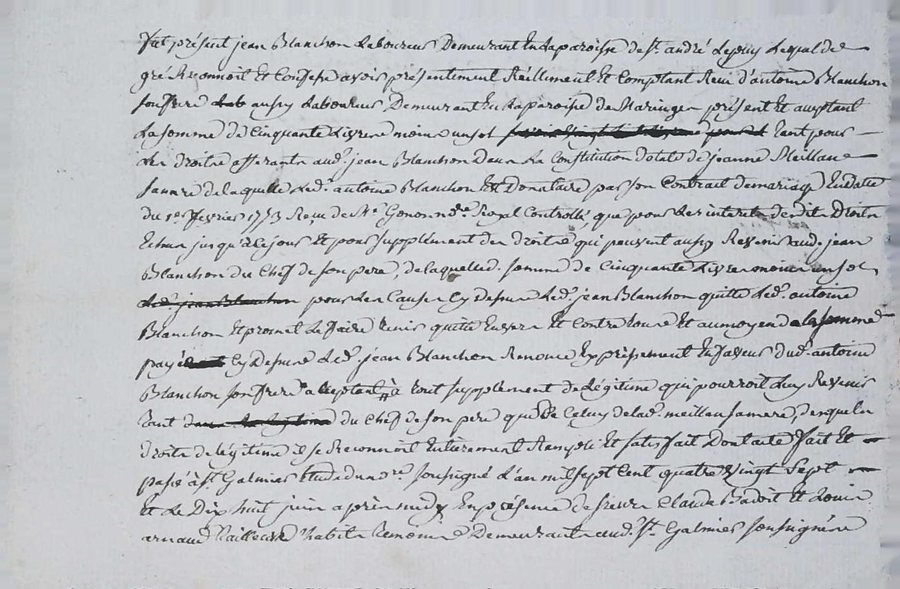 fut présent jean Blanchon Laboureur Demeurant En La paroisse de St. andré Lepuy Lequel de
gré Reconnoit Et Confesse avoir présentement Réellement Et Comptant Reçu d'antoine Blanchon
son frere aussy Laboureur Demeurant En La paroisse de Maringer présent Et acceptant
La somme de Cinquante Livres moins un sol tant pour
Les droits afferants aud. jean Blanchon dans La Constitution dotale de jeanne Meillan
sa mere de laquelle Led. antoine Blanchon Est Donataire par son Contrait de mariage En datte
du 1er. fevrier 1773 Reçu de Me. Gonon nore. Royal Controllé, que pour Les interets desdits Droits
Echus jusqu'a Ce jour Et pour supplement des droits qui peuvent aussy Revenir aud. jean
Blanchon du Chef de son pere, de laquelle d. somme de Cinquante Livres moins un sol
pour Les Causes Cy dessus Led. jean Blanchon quitte Led. antoine
Blanchon Et promet Le faire tenir quitte Envers Et Contre tous Et au moyen de la somme
payée Cy dessus Led. jean Blanchon Renonce Expressement En faveur dud. antoine
Blanchon son frere acceptant à tout supplement de Légitime qui pourroit Luy Revenir
tant du Chef de son pere que de Celuy de lad. meillan sa mere, desquels
droits de légitime il se Reconnoit Entierement Rempli Et satisfait Dont acte fait Et
passé à St. Galmier Etude du nore. soussigné L'an mil sept Cent quatre vingt sept
Et Le Dix huit juin après midy En présence de sieurs Claude Badoit Et Louis
arnaud Tailleur habits Demeurants aud. St. Galmier soussignéne